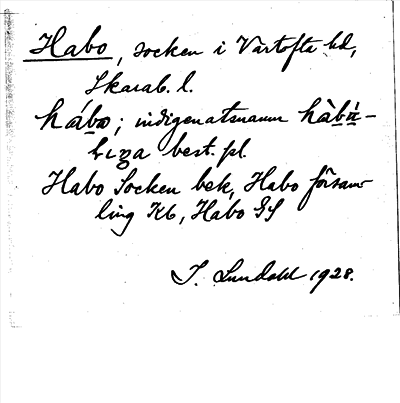 Habo, socken i Vartofta hd,
Skarab. l.
hábo; indigenatsnamn hàbı̣̀n-
bɩga best. pl.
Habo Socken bek, Habo försam-
ling Kb, Habo GS
I. Lundahl 1928.